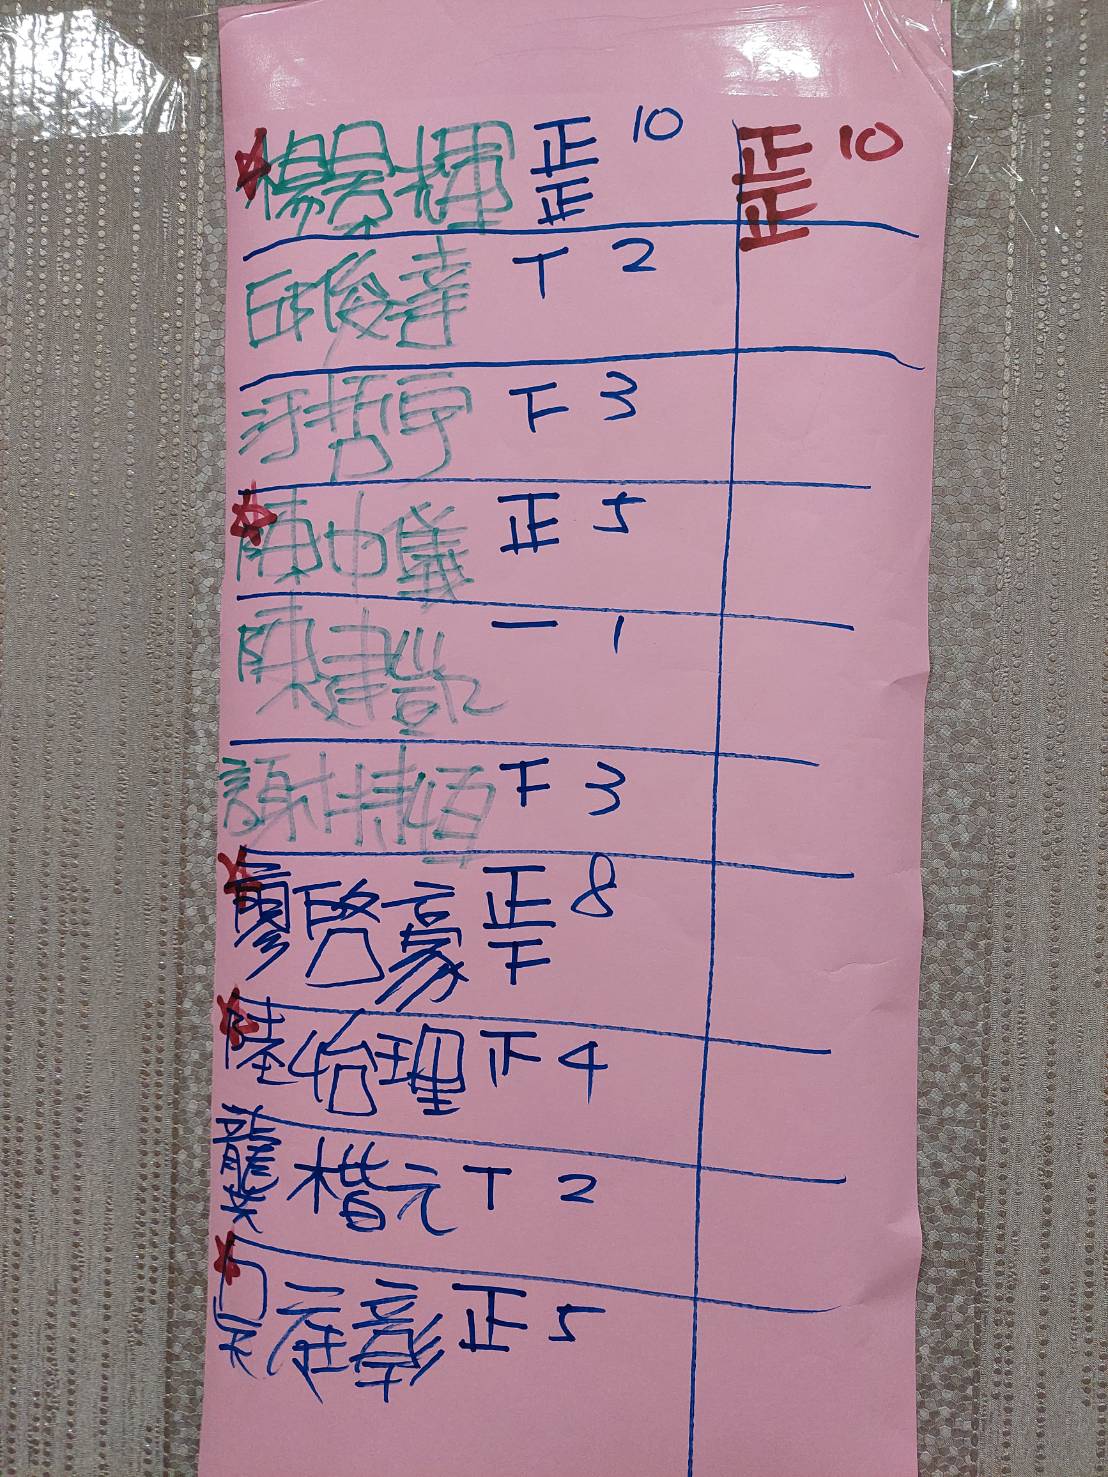 楊景輝 正正 10 正正 10
邱俊達 T 2
汪哲宇 下 3
陳中儀 正 5
陳建凱 一 1
謝持恆 下 3
廖啓豪 正下 8
陸怡理 正 4
龔楷元 T 2
吳庭彰 正 5